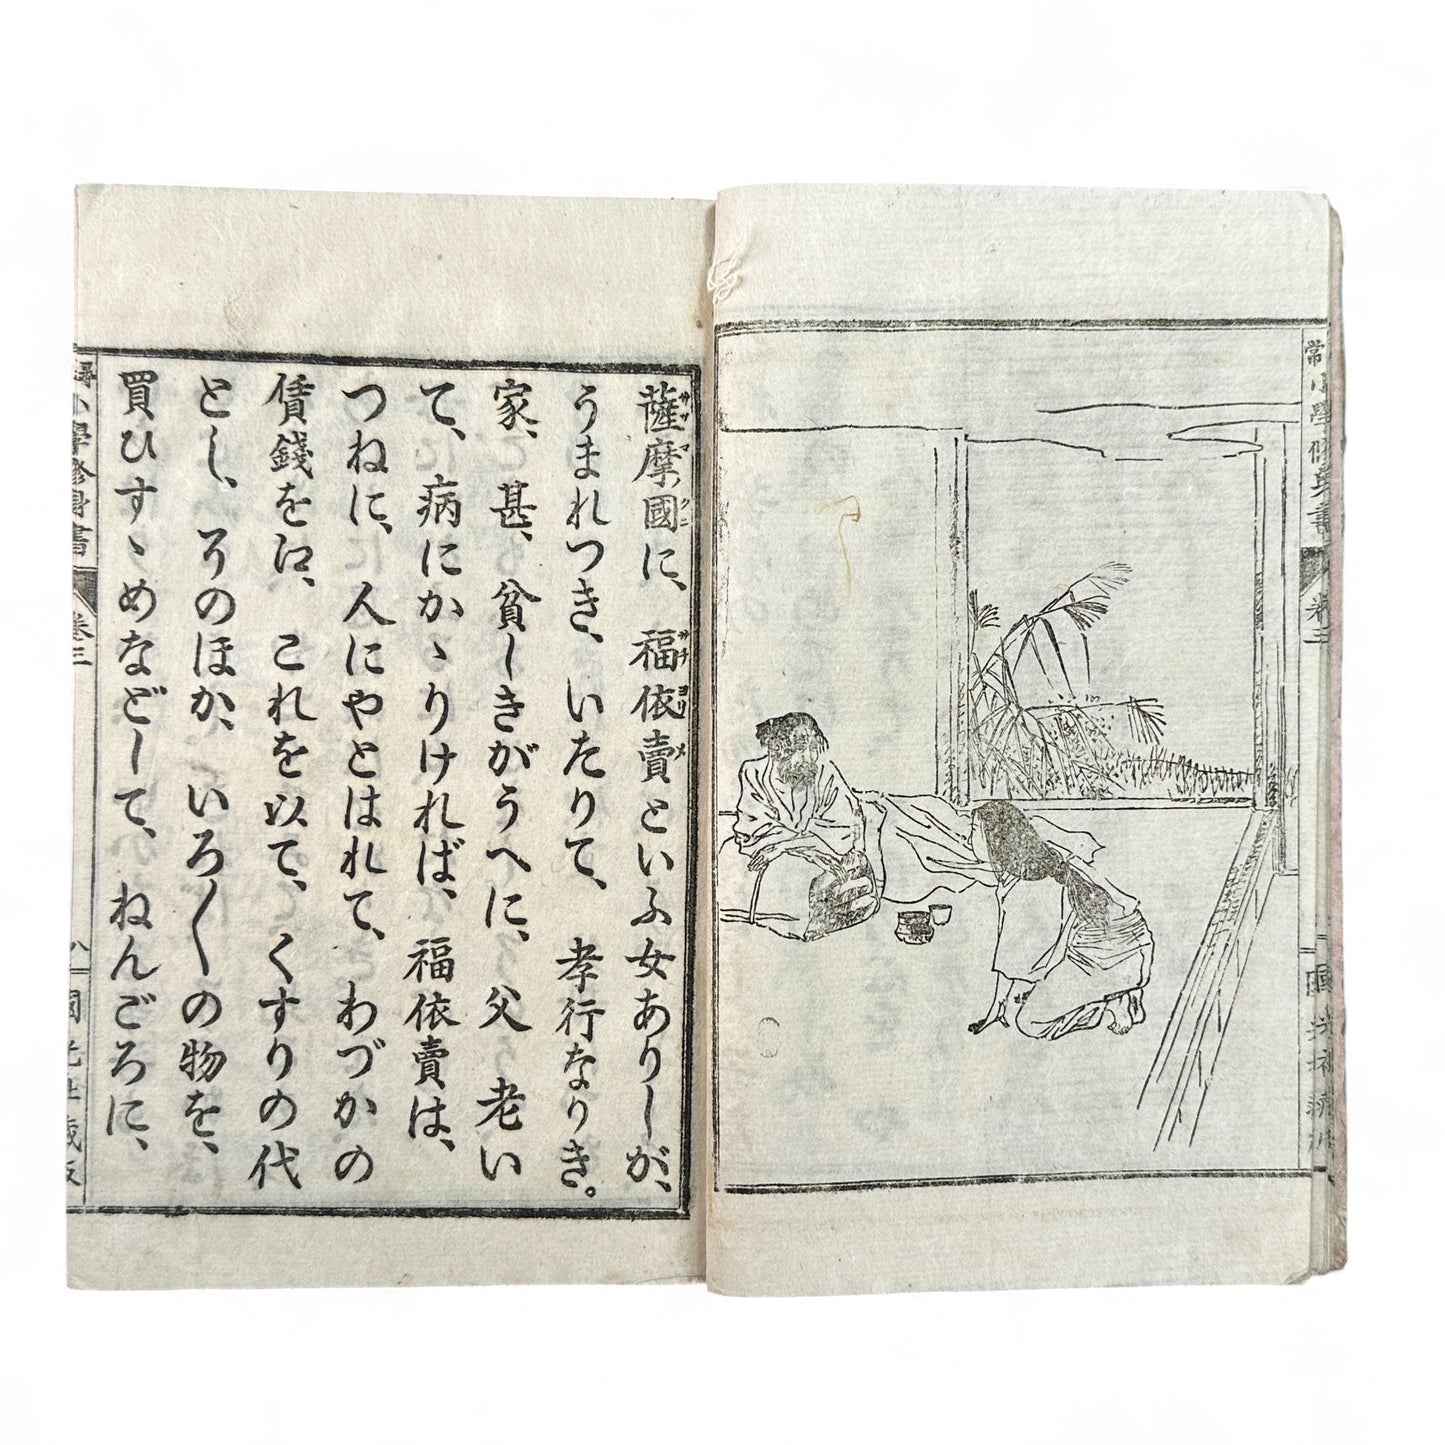 薩摩國に、福依賣といふ女ありしが、
サツマクニ サチヨリメ
うまれつき、いたりて、孝行なりき。
家、甚、貧しきがうへに、父老い
て、病にかゝりければ、福依賣は、
つねに、人にやとはれて、わづかの
賃錢を江、これを以て、くすりの代
とし、そのほか、いろ〳〵の物を、
買ひすゝめなどして、ねんごろに、
尋常小學修身書
卷三
八
國光社藏版
常小學修身書
卷三
國光社藏版